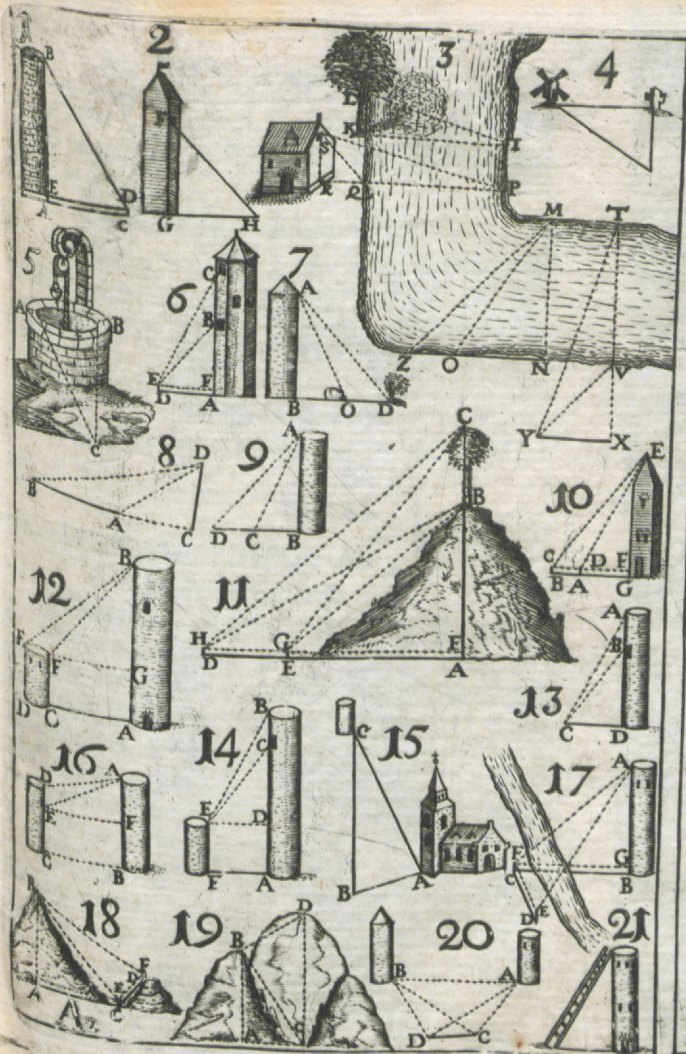 1
B
E
A
D
C
2
F
G
H
3
K
S
R
Q
I
P
M
T
Z
O
N
V
Y
X
4
5
A
B
C
6
C
B
E
D
F
A
7
A
B
O
D
8
B
A
D
C
9
A
D
C
B
10
E
C
D
F
B
A
G
11
C
B
H
G
F
D
E
A
12
B
F
F
G
D
C
A
13
A
B
C
D
14
B
C
E
D
F
A
15
C
B
A
16
D
A
E
F
C
B
17
A
F
G
C
B
D
E
18
B
F
D
E
A
C
19
B
D
A
C
20
B
A
D
C
21